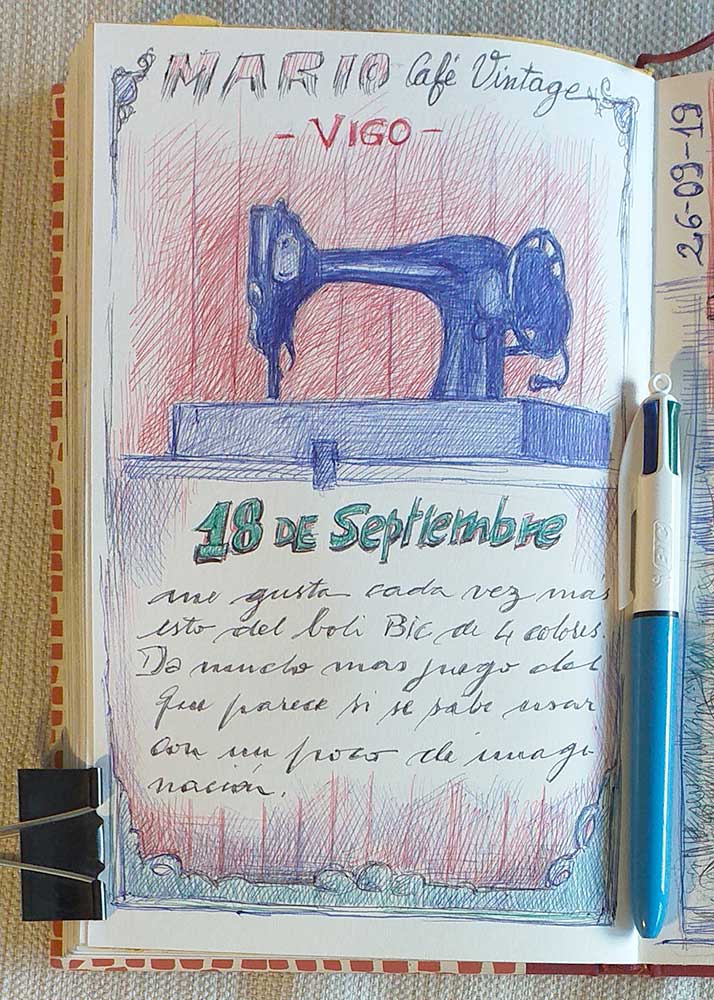 MARIO Café Vintage
- VIGO -
18 DE Septiembre
me gusta cada vez mas
esto del boli Bic de 4 colores.
Da mucho mas juego del
que parece si se sabe usar
con un poco de imagi-
nación.
26-09-19
BIC